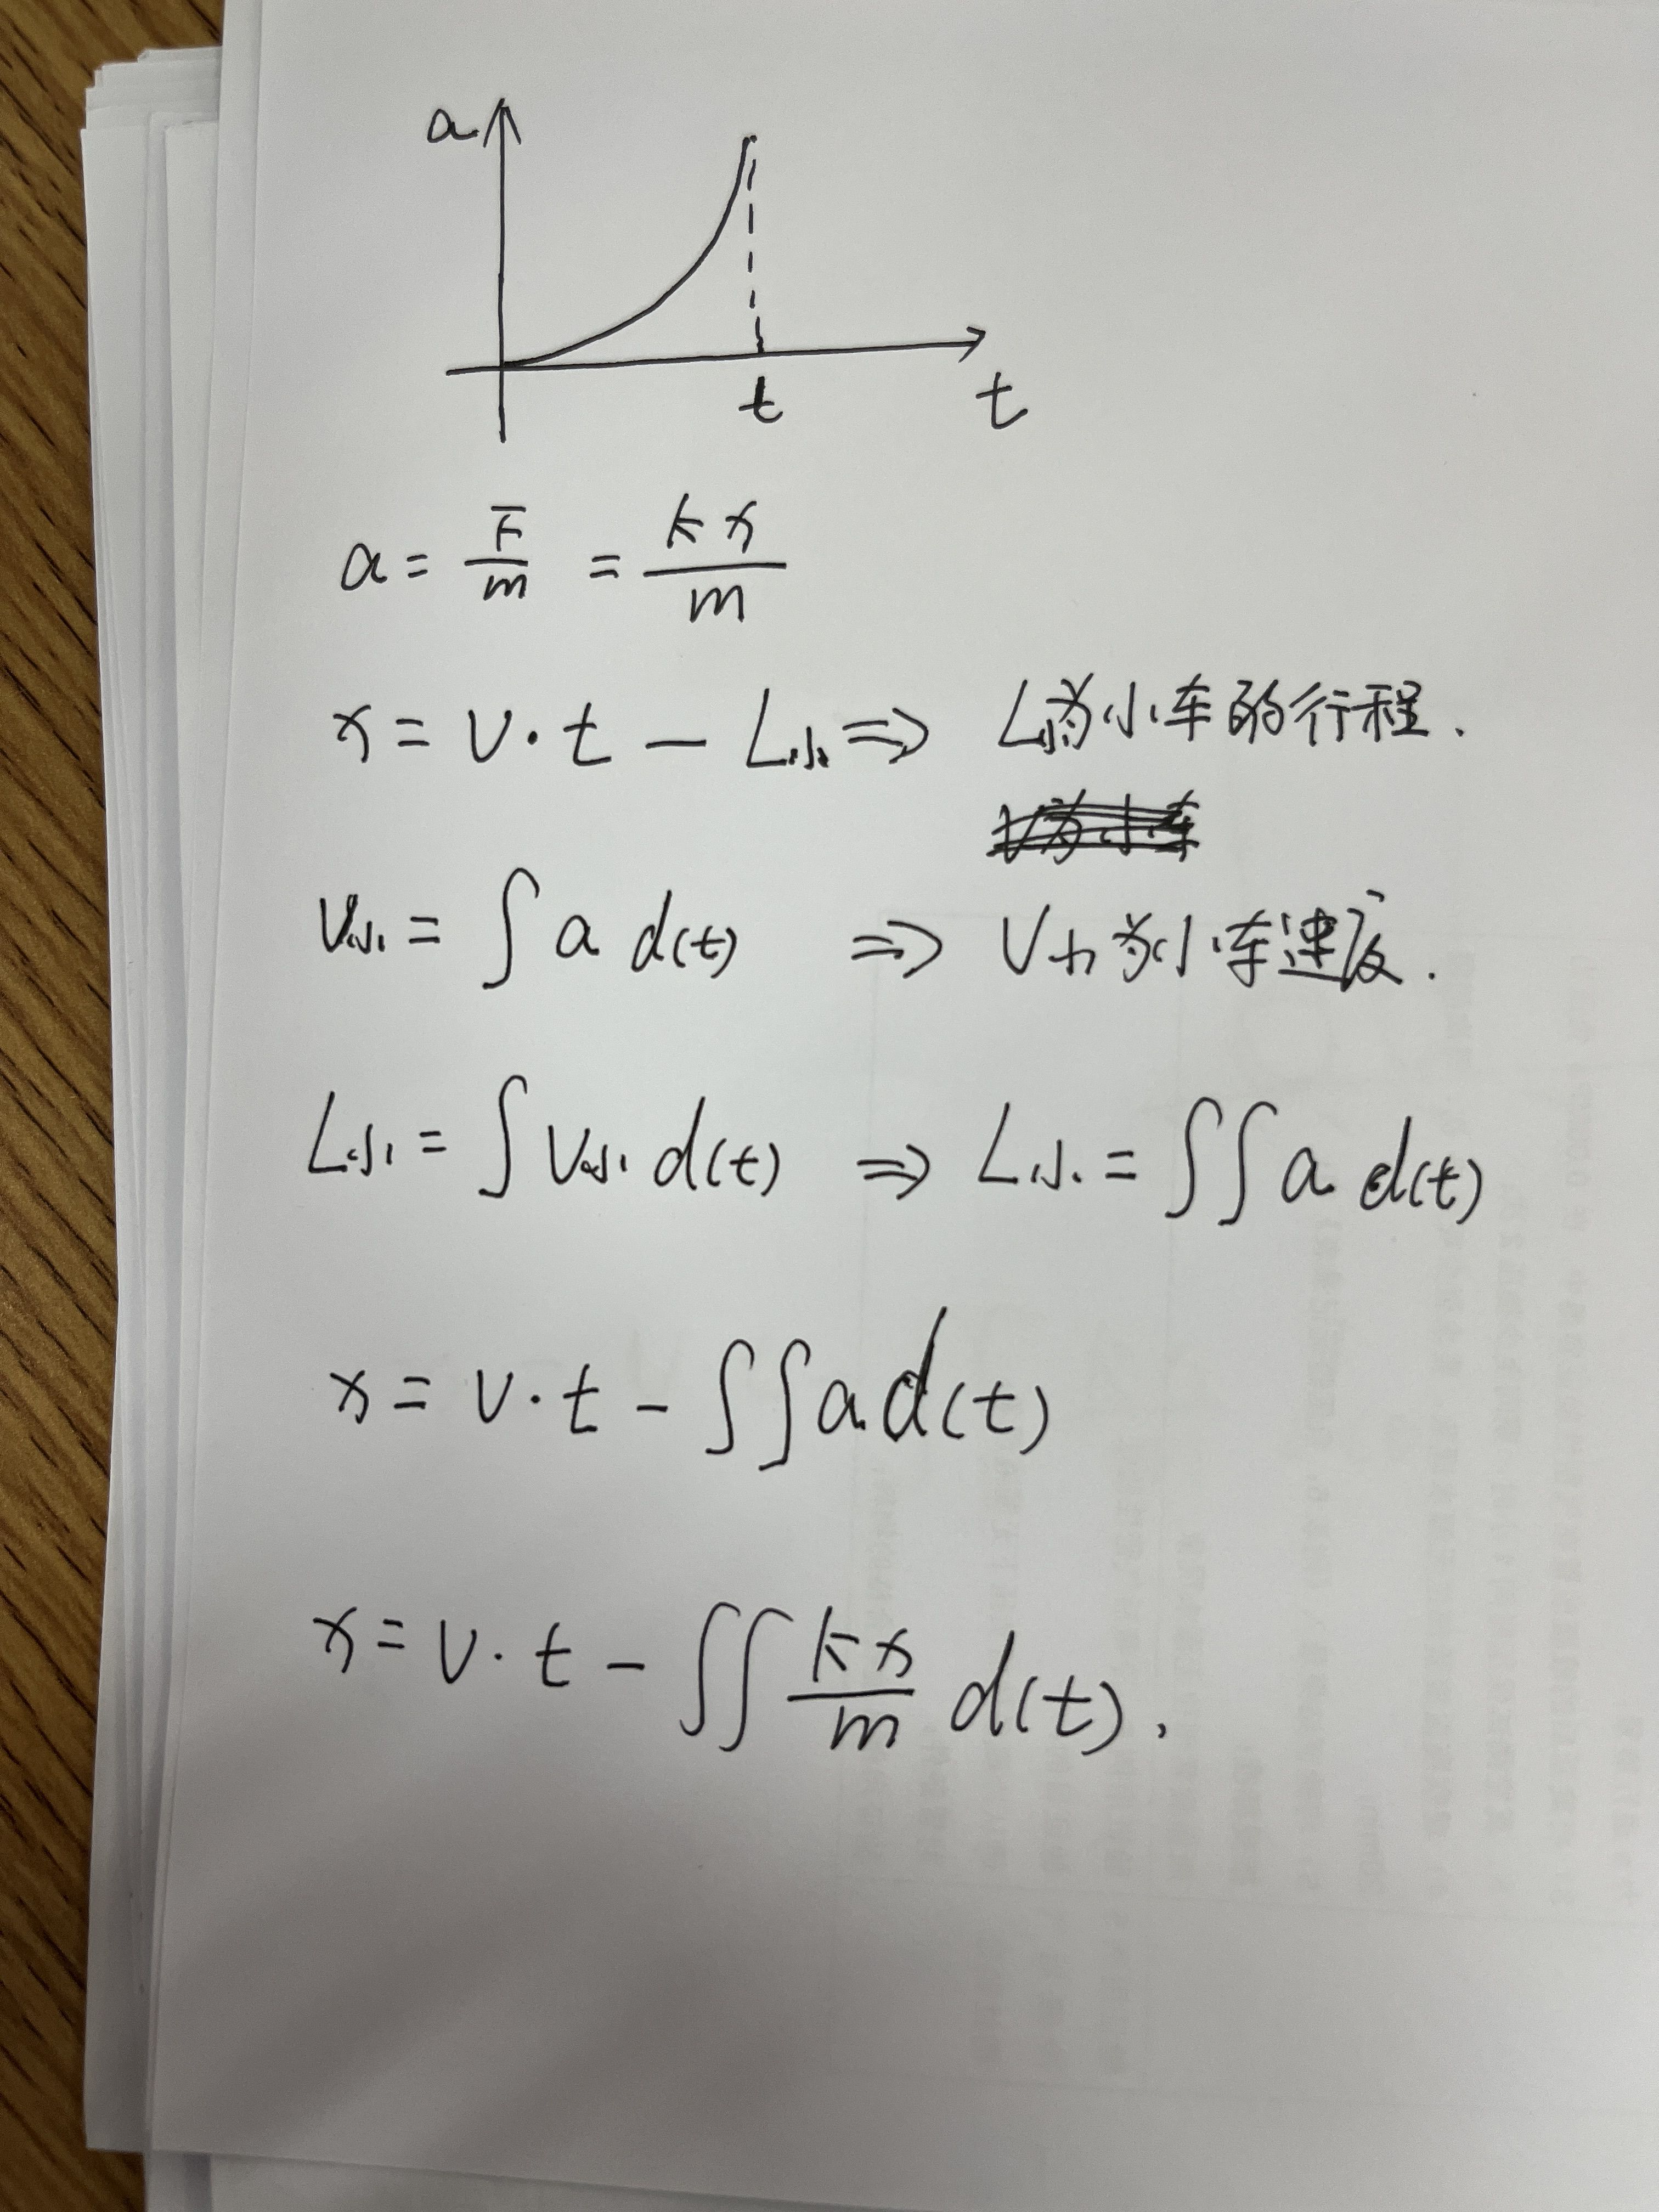 a
t
t
a = F/m = kx/m
x = v·t - L小 ⇒ L小为小车的行程.
V为小车
V小 = ∫ a d(t) ⇒ V小为小车速度.
L小 = ∫ V小 d(t) ⇒ L小 = ∫∫ a d(t)
x = v·t - ∫∫ a d(t)
x = v·t - ∫∫ kx/m d(t).